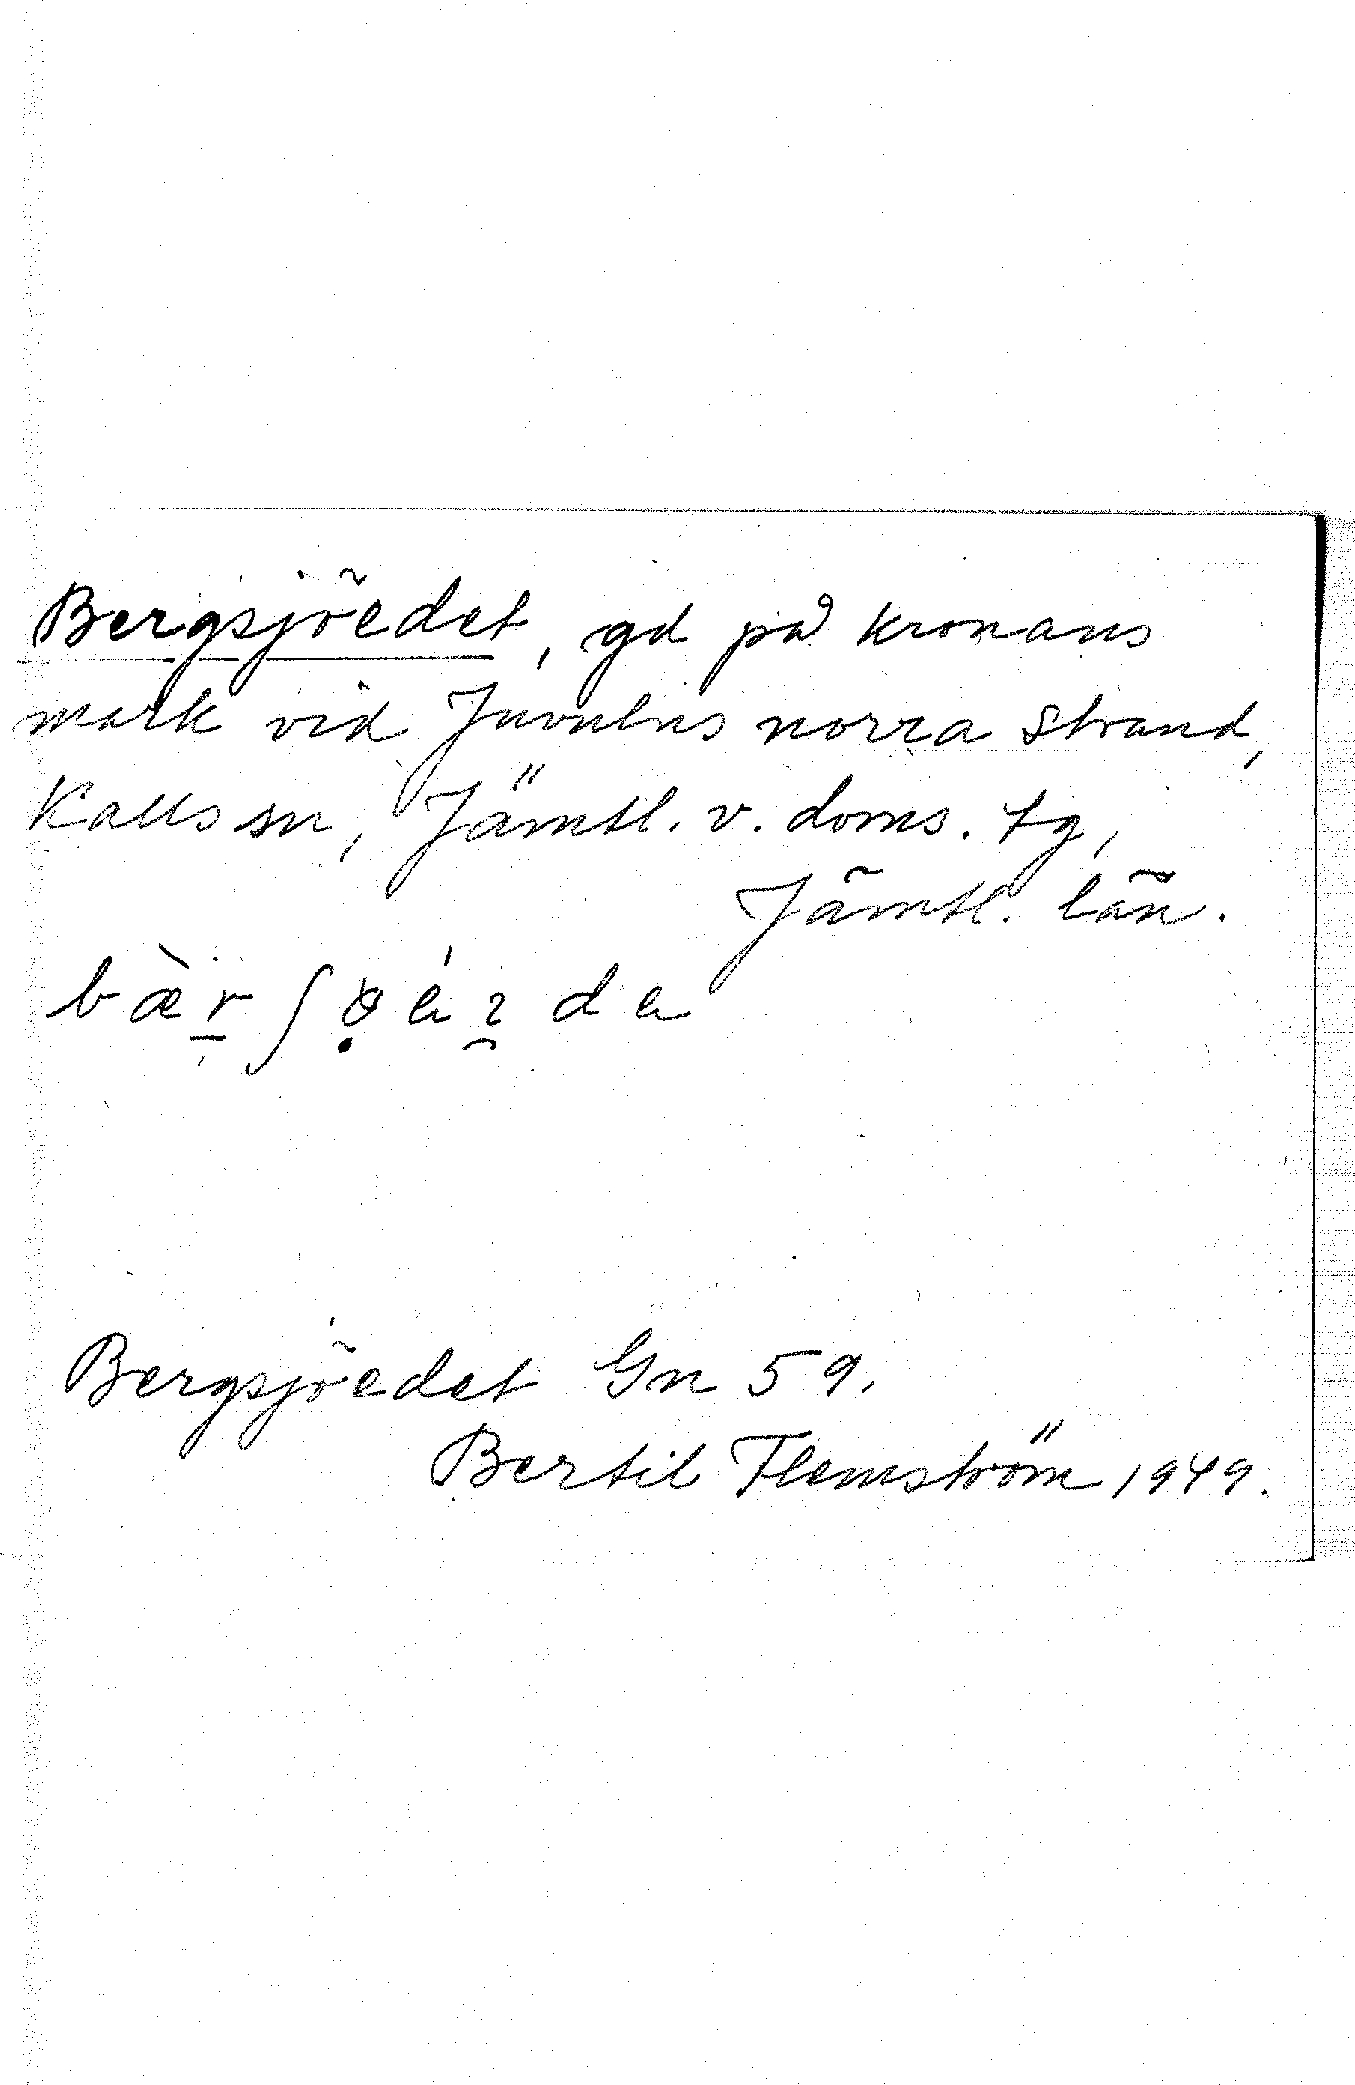 Bergsjöedet, gd på kronans
mark vid Juvulns norra strand,
Kalls sn, Jämtl. v. doms. tg,
Jämtl. län.
bær̲ʃø̣éɿ̯de
Bergsjöedet Gn 59.
Bertil Flemström 1949.